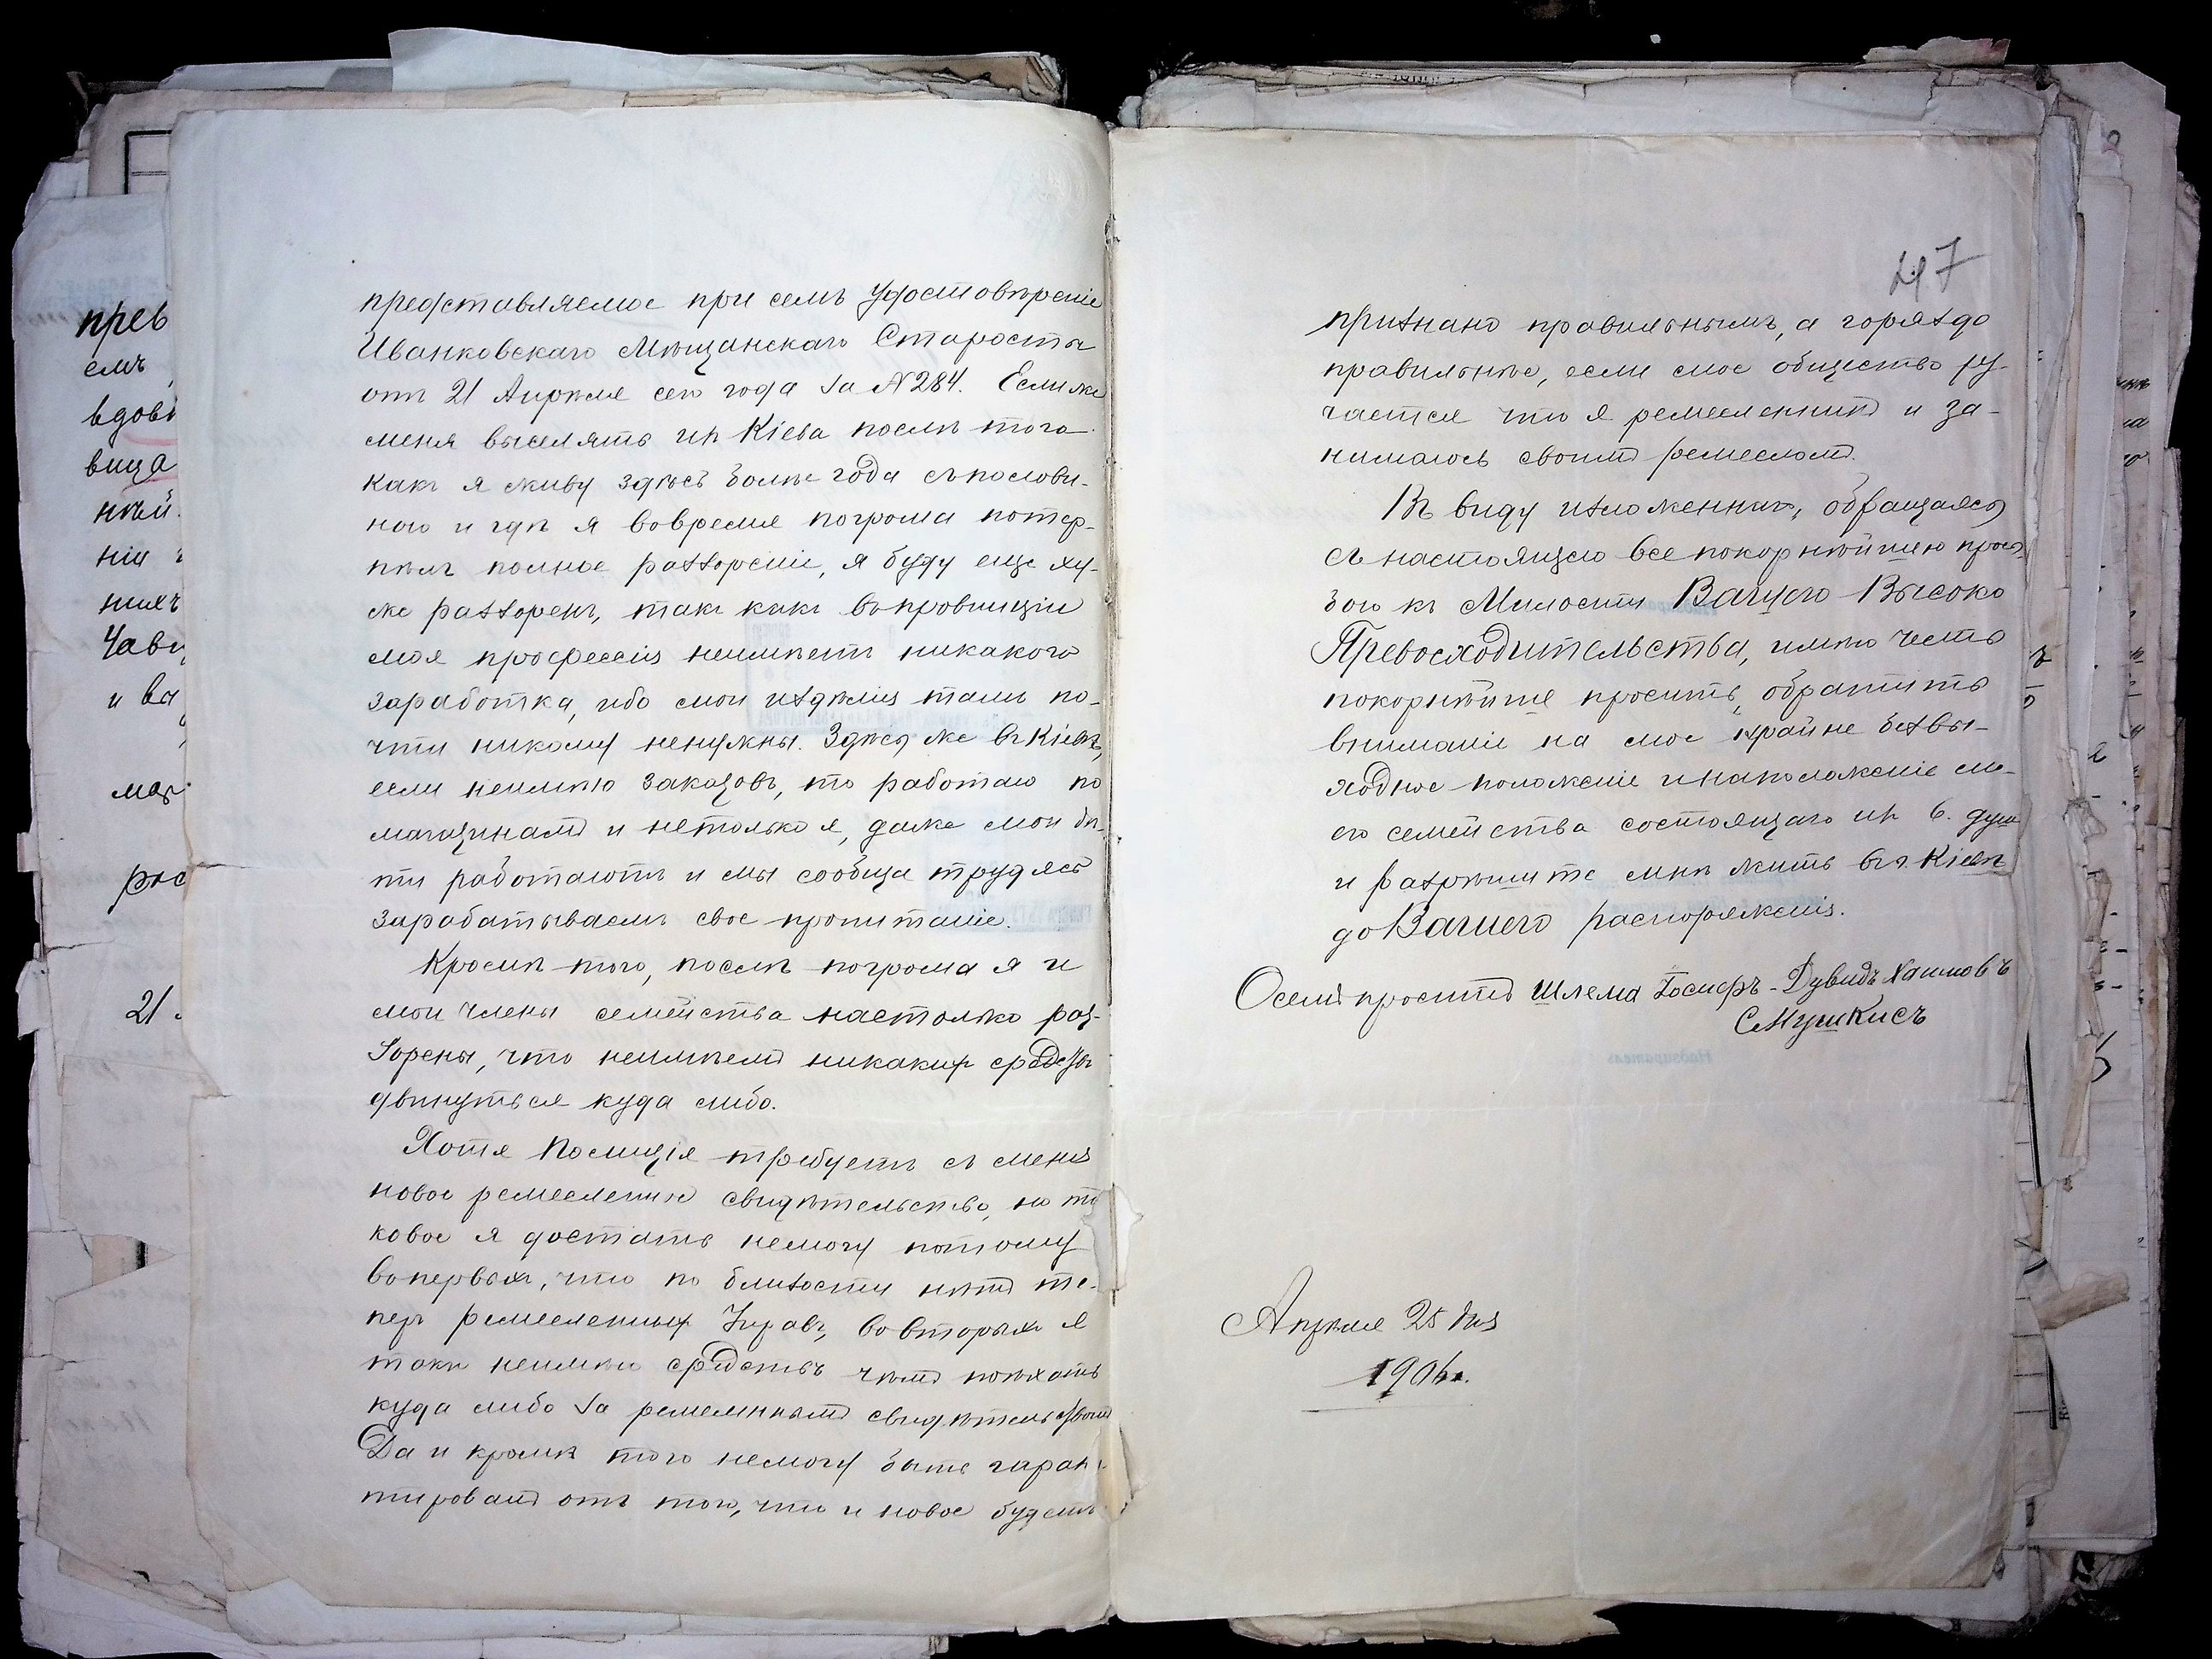 представляемое при семъ удостовѣреніе
Иванковскаго Мѣщанскаго Старосты
отъ 21 Апрѣля сего года за № 284. Если же
меня выселять изъ Кіева послѣ того
какъ я живу здѣсь болѣе года съ полови-
ною и гдѣ я вовремя погрома потер-
пѣлъ полное раззореніе, я буду еще ху-
же раззоренъ, такъ какъ въ провинціи
моя профессія неимѣетъ никакого
заработка, ибо мои издѣлія тамъ по-
чти никому ненужны. Здѣсь же въ Кіевѣ,
если неимѣю заказовъ, то работаю по
магазинамъ и нетолько я, даже мои дѣ-
ти работаютъ и мы сообща трудясь
зарабатываемъ свое пропитаніе.
Кромѣ того, послѣ погрома я и
мои члены семейства настолько раз-
зорены, что неимѣемъ никакихъ средствъ
двинуться куда либо.
Хотя Полиція требуетъ съ меня
новое ремесленное свидѣтельство, но та
ковое я достать немогу потому
вопервыхъ, что по близости нѣтъ те-
перь ремесленныхъ Управъ, вовторыхъ я
такъ неимѣю средствъ чѣмъ поѣхать
куда либо за ремеленнымъ свидѣтельствомъ
Да и кромѣ того немогу быть гаран-
тированъ отъ того, что и новое будетъ
прев
емъ
вдов
вица
нѣй
нія
Чав
и вы
мѣс
21.
297
признано правильнымъ, а гораздо
правильнѣе, если мое общество ру-
чается что я ремесленникъ и за-
нимаюсь своимъ ремесломъ.
Въ виду изложеннаго, обращаясь
съ настоящею все покорнѣйшею прось-
бою къ Милости Вашего Высоко
Превосходительства, имѣю честь
покорнѣйше просить, обратить
вниманіе на мое крайне безвы-
ходное положеніе и на положеніе мо-
его семейства состоящаго изъ 6. душъ
и разрѣшите мнѣ жить въ г. Кіевѣ
до Вашего распоряженія.
Осемъ проситъ Шлема Іосифъ-Дувидъ Хаимовъ
Мушкисъ
Апрѣля 25 дня
1906 г.
Надзиратель